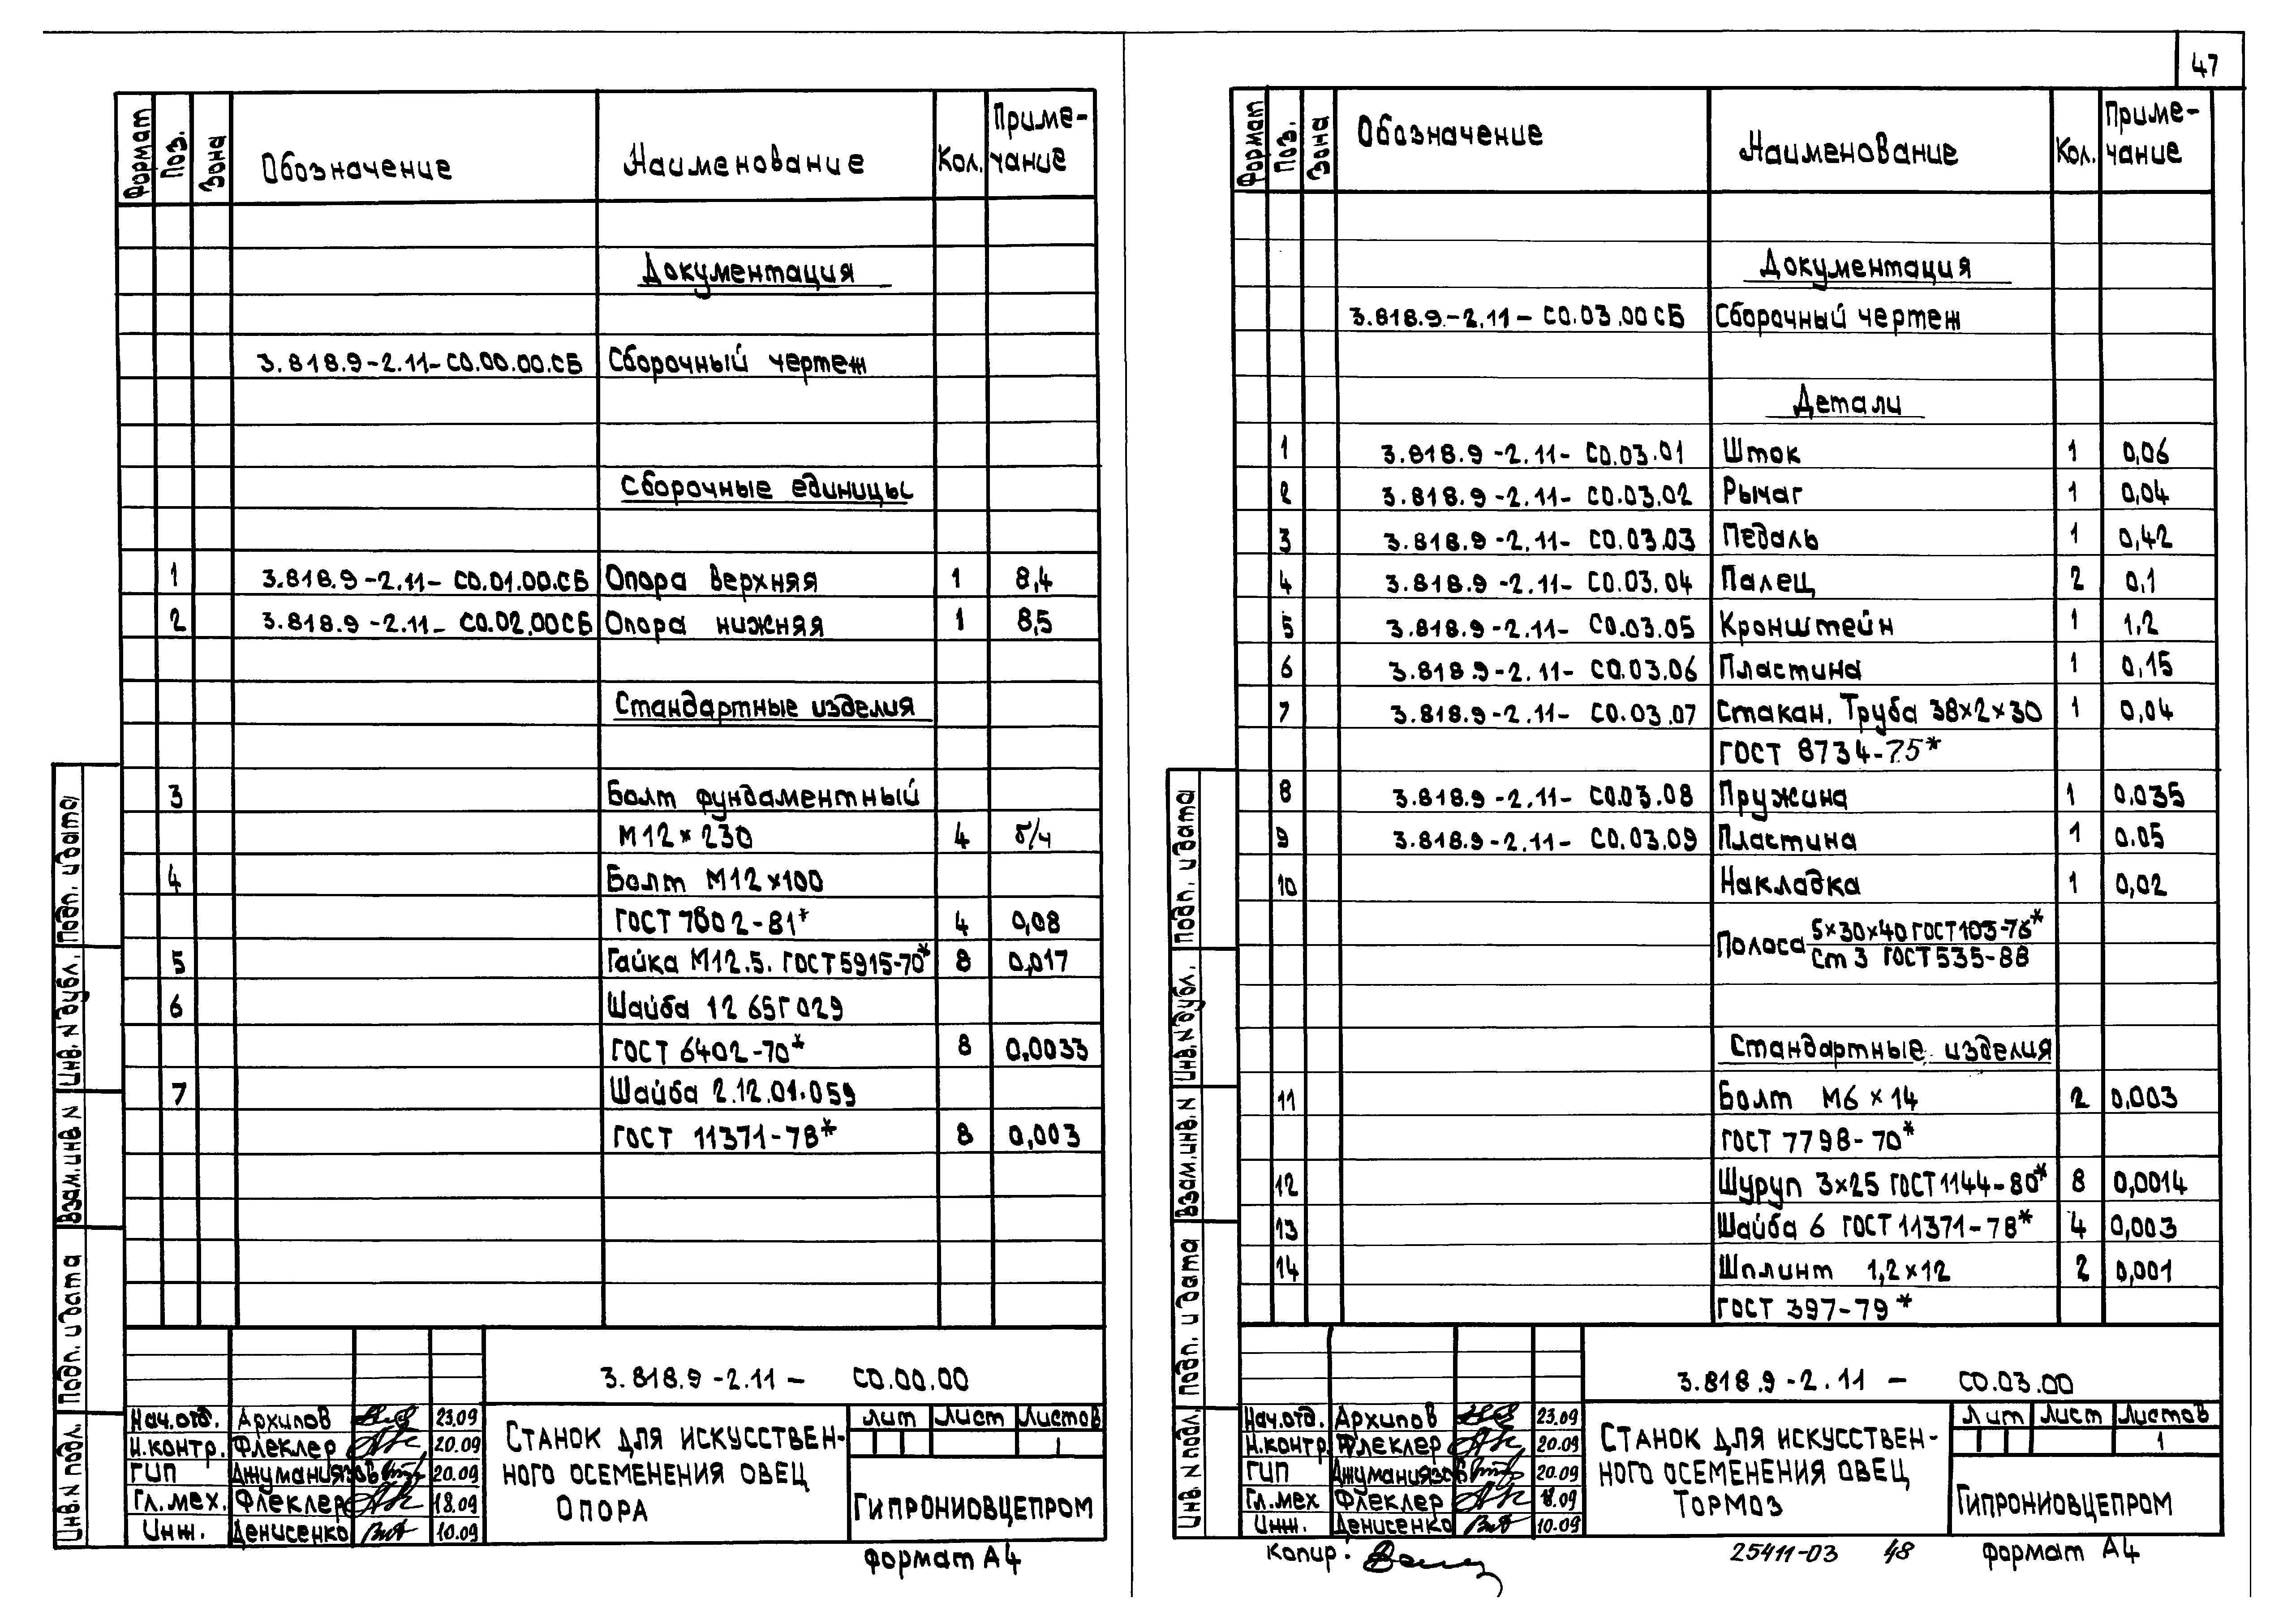 47
Формат Поз. Зона Обозначение Наименование Кол. Приме-
чание
Документация
3.818.9-2.11-СО.00.00.СБ Сборочный чертеж
Сборочные единицы
1 3.818.9-2.11-СО.01.00.СБ Опора верхняя 1 8,4
2 3.818.9-2.11-СО.02.00СБ Опора нижняя 1 8,5
Стандартные изделия
3 Болт фундаментный
М12×230 4 б/ч
4 Болт М12×100
ГОСТ 7802-81* 4 0,08
5 Гайка М12.5. ГОСТ5915-70* 8 0,017
6 Шайба 12 65Г 029
ГОСТ 6402-70* 8 0,0033
7 Шайба 2.12.01.059
ГОСТ 11371-78* 8 0,003
Инв. N подл. Подп. и дата Взам.инв. N Инв. N дубл. Подп. и дата
3.818.9-2.11- СО.00.00
Нач.отд. Архипов 23.09
Н.контр. Флеклер 20.09
ГИП Джуманиязов 20.09
Гл.мех. Флеклер 18.09
Инж. Денисенко 10.09
Станок для искусствен-
ного осеменения овец
Опора
Лит Лист Листов
1
Гипрониовцепром
Формат А4
Формат Поз. Зона Обозначение Наименование Кол. Приме-
чание
Документация
3.818.9-2.11-СО.03.00СБ Сборочный чертеж
Детали
1 3.818.9-2.11-СО.03.01 Шток 1 0,06
2 3.818.9-2.11-СО.03.02 Рычаг 1 0,04
3 3.818.9-2.11-СО.03.03 Педаль 1 0,42
4 3.818.9-2.11-СО.03.04 Палец 2 0,1
5 3.818.9-2.11-СО.03.05 Кронштейн 1 1,2
6 3.818.9-2.11-СО.03.06 Пластина 1 0,15
7 3.818.9-2.11-СО.03.07 Стакан. Труба 38×2×30 1 0,04
ГОСТ 8734-75*
8 3.818.9-2.11-СО.03.08 Пружина 1 0.035
9 3.818.9-2.11-СО.03.09 Пластина 1 0.05
10 Накладка 1 0,02
Полоса 5×30×40 ГОСТ103-76*
Ст 3 ГОСТ535-88
Стандартные изделия
11 Болт М6×14 2 0,003
ГОСТ 7798-70*
12 Шуруп 3×25 ГОСТ1144-80* 8 0,0014
13 Шайба 6 ГОСТ 11371-78* 4 0,003
14 Шплинт 1,2×12 2 0,001
ГОСТ 397-79*
Инв. N подл. Подп. и дата Взам.инв. N Инв. N дубл. Подп. и дата
3.818.9-2.11- СО.03.00
Нач.отд. Архипов 23.09
Н.контр. Флеклер 20.09
ГИП Джуманиязов 20.09
Гл.мех Флеклер 18.09
Инж. Денисенко 10.09
Станок для искусствен-
ного осеменения овец
Тормоз
Лит Лист Листов
1
Гипрониовцепром
Копир:
25411-03 48 Формат А4